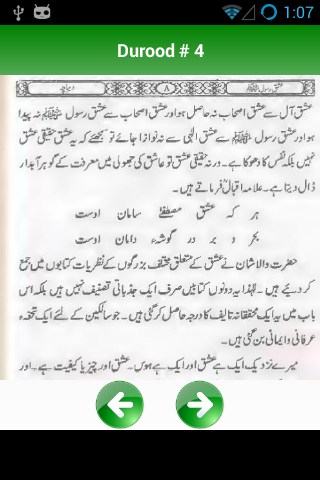 1:07
Durood # 4
عشق رسول ﷺ ۸ دیباچہ
عشق آل سے عشق اصحاب نہ حاصل ہو اور عشق اصحاب سے عشق رسول ﷺ نہ پیدا
ہو اور عشق رسول ﷺ سے عشق الٰہی سے نہ نوازا جائے تو سمجھئے کہ یہ عشق حقیقی عشق
نہیں بلکہ نفس کا دھوکا ہے۔ ورنہ حقیقی عشق تو عاشق کی جھولی میں معرفت کے گوہر آبدار
ڈال دیتا ہے۔ علامہ اقبالؒ فرماتے ہیں۔
ہر کہ عشق مصطفےٰ سامان اوست
بحر و بر در گوشہء دامان اوست
حضرت والا شان نے عشق کے متعلق مختلف بزرگوں کے نظریات کتابوں میں جمع
کر دیئے ہیں۔ لہٰذا یہ دونوں کتابیں صرف ایک جذباتی تصنیف نہیں ہیں بلکہ اس
باب میں یہ ایک محققانہ تالیف کا درجہ حاصل کر گئی ہیں۔ جو سالکین کے لئے ایک تحفہء
عرفانی و ایمانی بن گئی ہیں۔
میرے نزدیک ایک ہے عشق اور ایک ہے ہوس۔ عشق اور چیز یا کیفیت ہے۔ اور